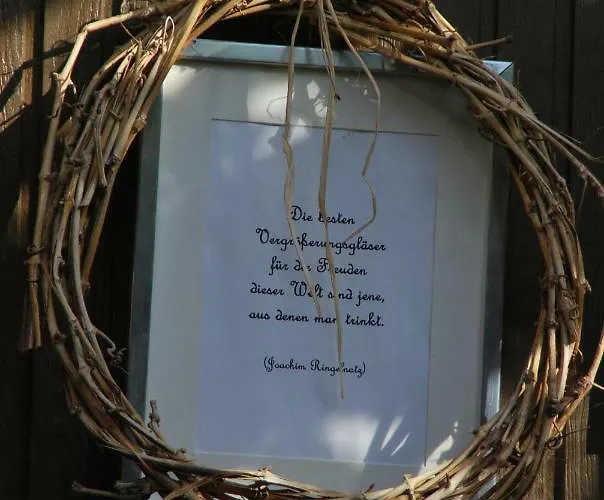 Die besten
Vergrößerungsgläser
für die Freuden
dieser Welt sind jene,
aus denen man trinkt.
(Joachim Ringelnatz)